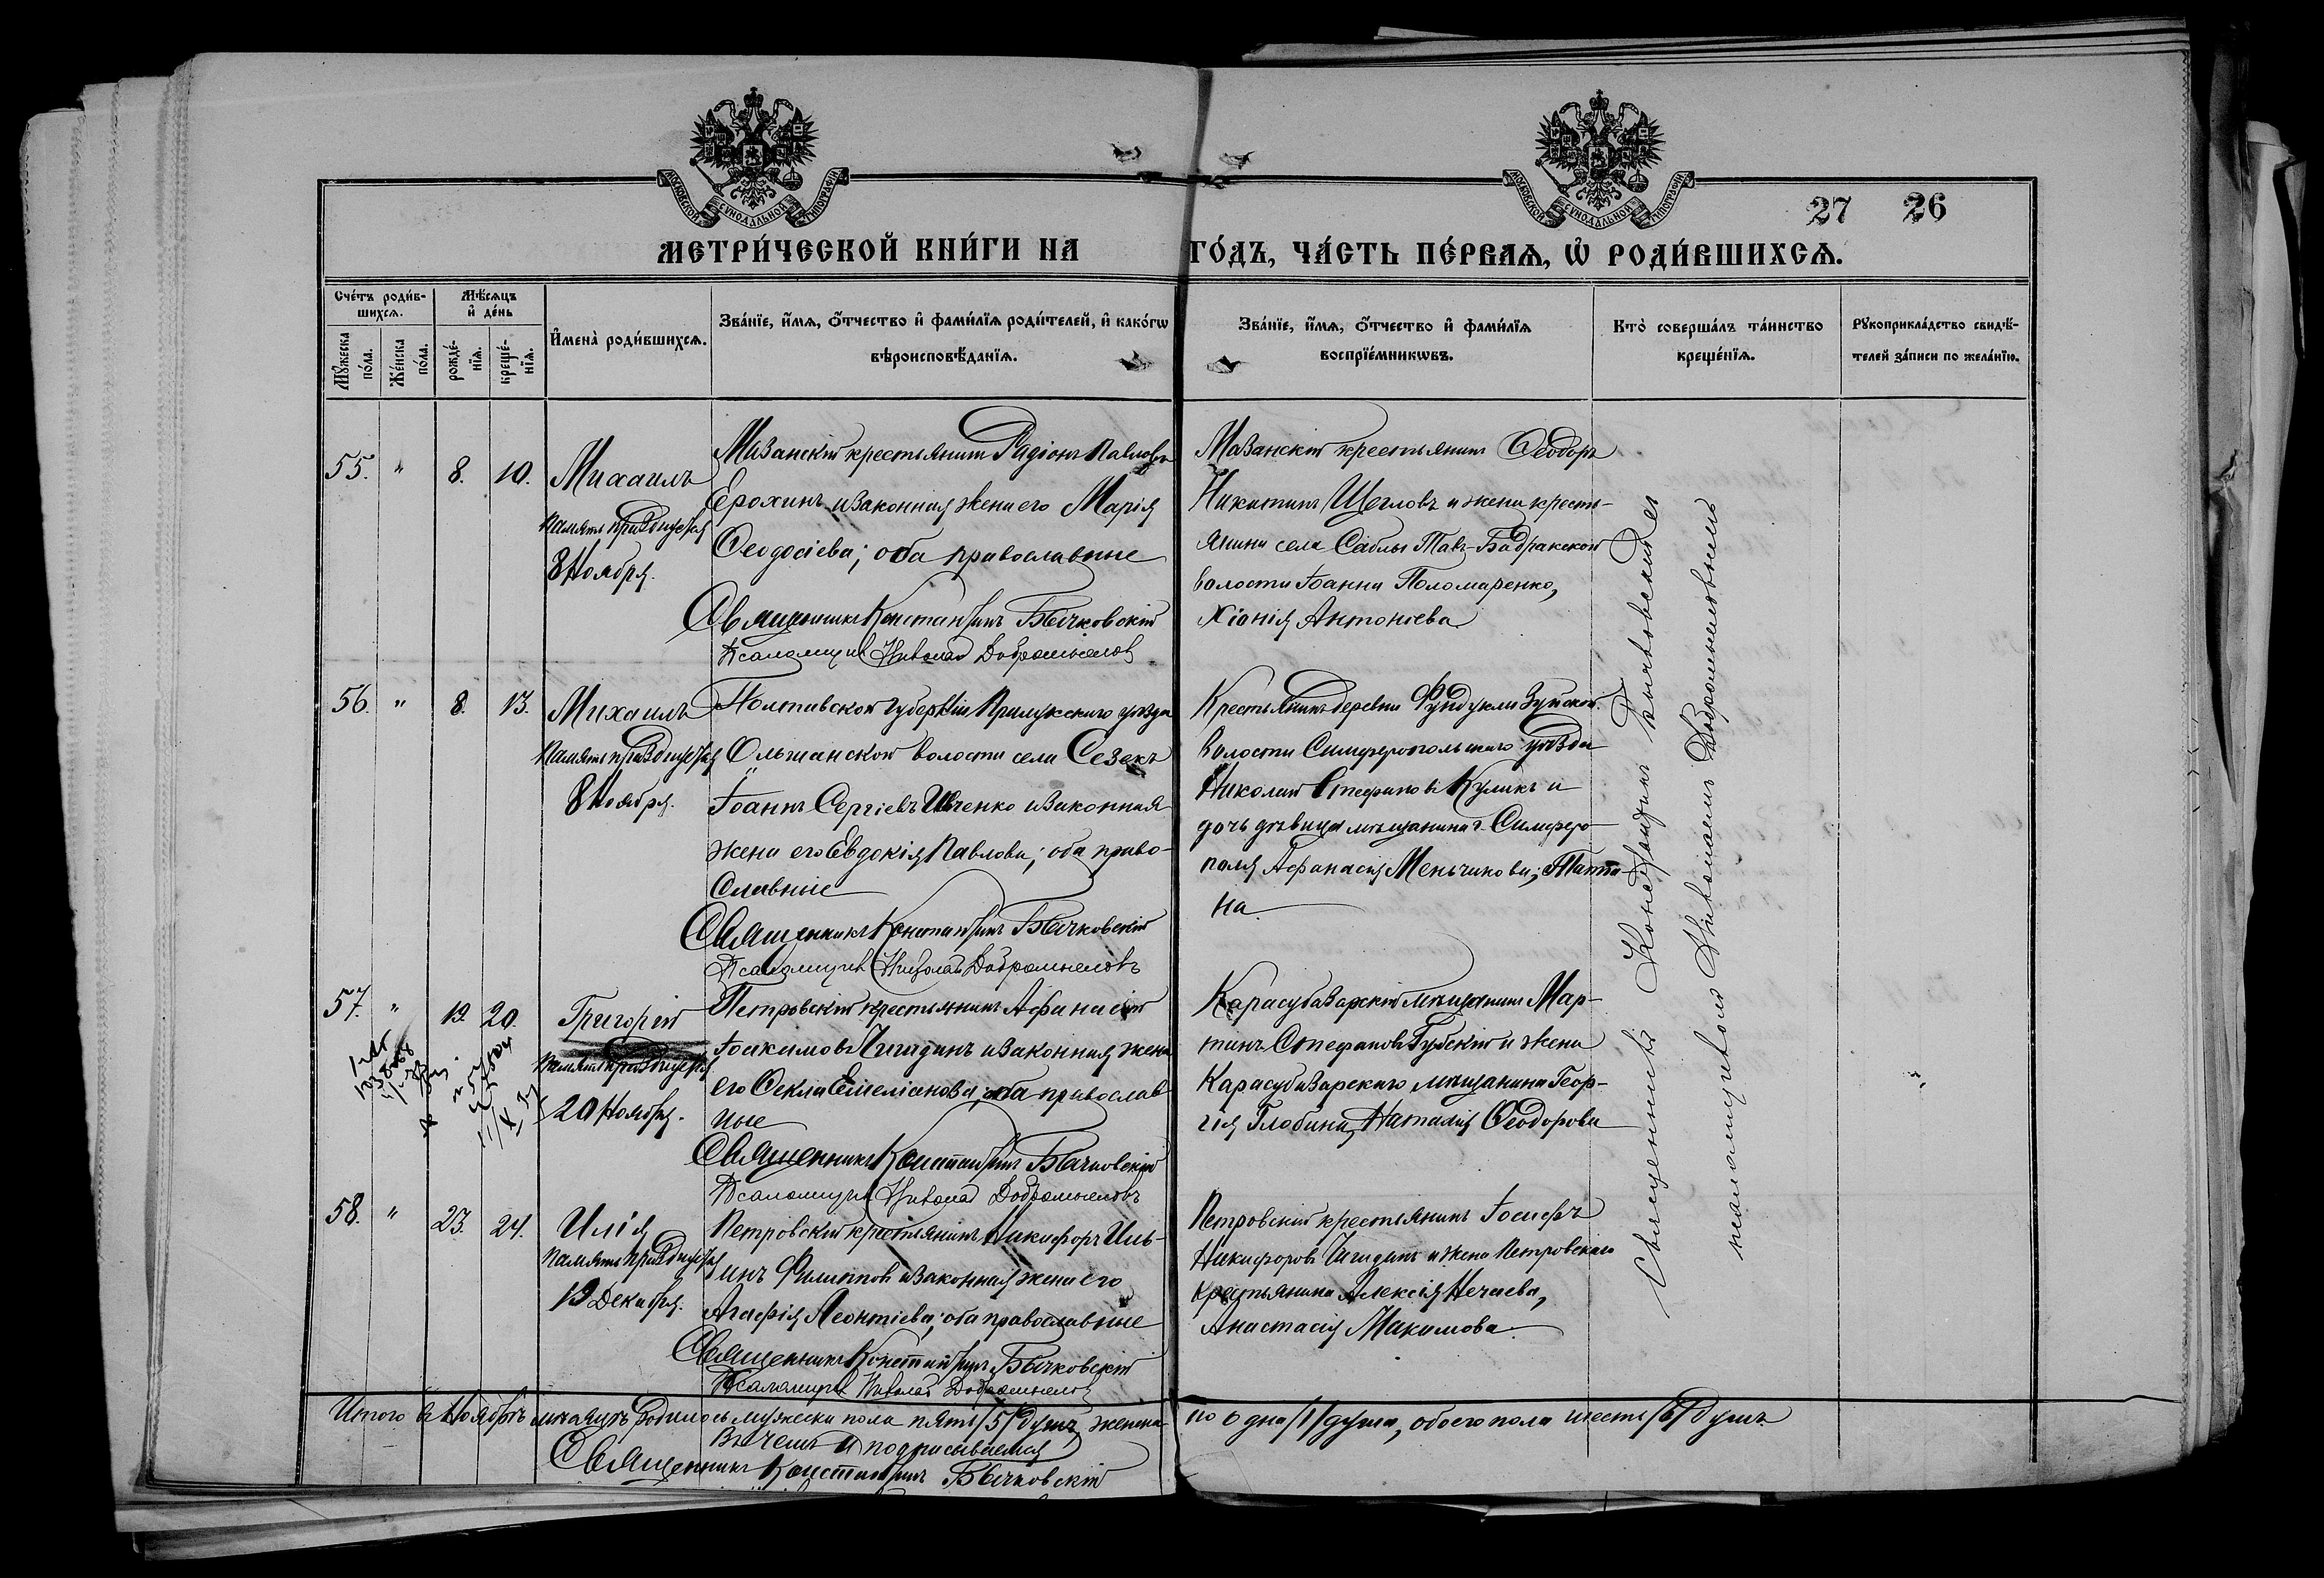 МОСКОВСКОЙ СѴНОДАЛЬНОЙ ТИПОГРАФІИ
МОСКОВСКОЙ СѴНОДАЛЬНОЙ ТИПОГРАФІИ
27 26
МЕТРИ́ЧЕСКОЙ КНИ́ГИ НА ГО́ДЪ, ЧА́СТЬ ПЕ́РВАѦ, Ѽ РОДИ́ВШИХСѦ.
Сче́тъ роди́в-
шихсѧ.
Мꙋ́жеска по́ла.
Же́нска по́ла.
Мѣ́сѧцъ и҆ де́нь
рожде́-нїѧ.
креще́-нїѧ.
И҆мена̀ роди́вшихсѧ.
Зва́нїе, и҆́мѧ, ѻ҆́тчество и҆ фами́лїѧ роди́телей, и҆ како́гѡ
вѣроисповѣ́данїѧ.
Зва́нїе, и҆́мѧ, ѻ҆́тчество и҆ фами́лїѧ
воспрїе́мникѡвъ.
Кто̀ соверша́лъ та́инство
креще́нїѧ.
Рꙋкоприкла́дство свидѣ́-
телей за́писи по жела́нїю.
55. " 8. 10. Михаилъ
память празднуется
8 Ноября.
Мазанскій крестьянинъ Радіонъ Павловъ
Ерохинъ и законная жена его Марія
Ѳеодосіева; оба православные
Священникъ Константинъ Бычковскій
Псаломщикъ Николай Добромысловъ
Мазанскій крестьянинъ Ѳеодоръ
Никитинъ Щегловъ и жена кресть-
янина села Саблы Тав-Бадракской
волости Іоанна Поломаренко,
Хіонія Антоніева
56. " 8. 13. Михаилъ
память празднуется
8 Ноября.
Полтавской губерніи Прилукскаго уѣзда
Ольшанской волости села Сезекъ
Іоаннъ Сергіевъ Ивченко и законная
жена его Евдокія Павлова; оба право-
славные
Священникъ Константинъ Бычковскій
Псаломщикъ Николай Добромысловъ
Крестьянинъ деревни Фундуклы Зуйской
волости Симферопольскаго уѣзда
Николай Стефановъ Куликъ и
дочь дѣвица мѣщанина г. Симферо-
поля Аѳанасія Меньчикова; Татья-
на
57. " 19. 20. Григорій
память празднуется
20 Ноября.
Петровскій крестьянинъ Аѳанасій
Іоакимовъ Чигидинъ и законная жена
его Ѳекла Емеліанова; оба православ
ные
Священникъ Константинъ Бычковскій
Псаломщикъ Николай Добромысловъ
Карасубазарскій мѣщанинъ Мар-
тинъ Стефановъ Губскій и жена
Карасубазарскаго мѣщанина Геор-
гія Глобина, Наталія Ѳеодорова
58. " 23. 24. Илія
память празднуется
19 Декабря.
Петровскій крестьянинъ Никифоръ Иль-
инъ Филиппов и законная жена его
Агафія Леонтіева; оба православные
Священникъ Константинъ Бычковскій
Псаломщикъ Николай Добромысловъ
Петровскій крестьянинъ Іосифъ
Никифоровъ Чигидинъ и жена Петровскаго
крестьянина Алексія Нечаева,
Анастасія Макимова.
Священникъ Константинъ Бычковскій съ
псаломщикомъ Николаемъ Добромысловымъ
Итого въ Ноябрѣ мѣсяцѣ родилось мужеска пола пять /5/ душъ, женска-
го одна /1/ душа, обоего пола шесть /6/ душъ
въ чемъ и подписываемся
Священникъ Константинъ Бычковскій